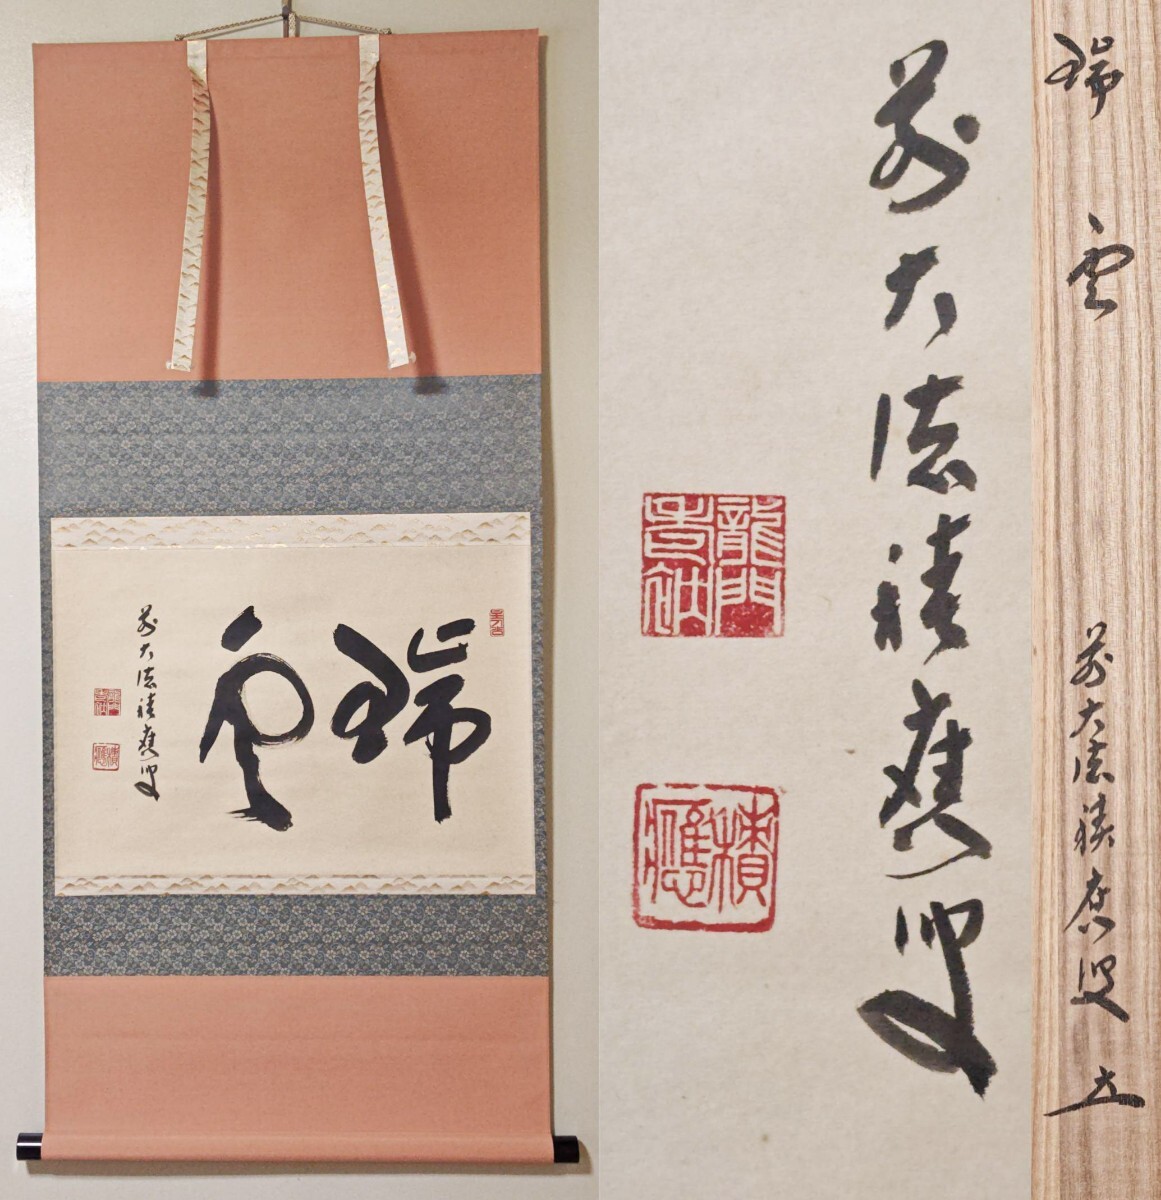 瑞雲
前大徳積應叟
龍門
積應
前大徳積應叟
龍門
積應
瑞雲
前大徳積應叟